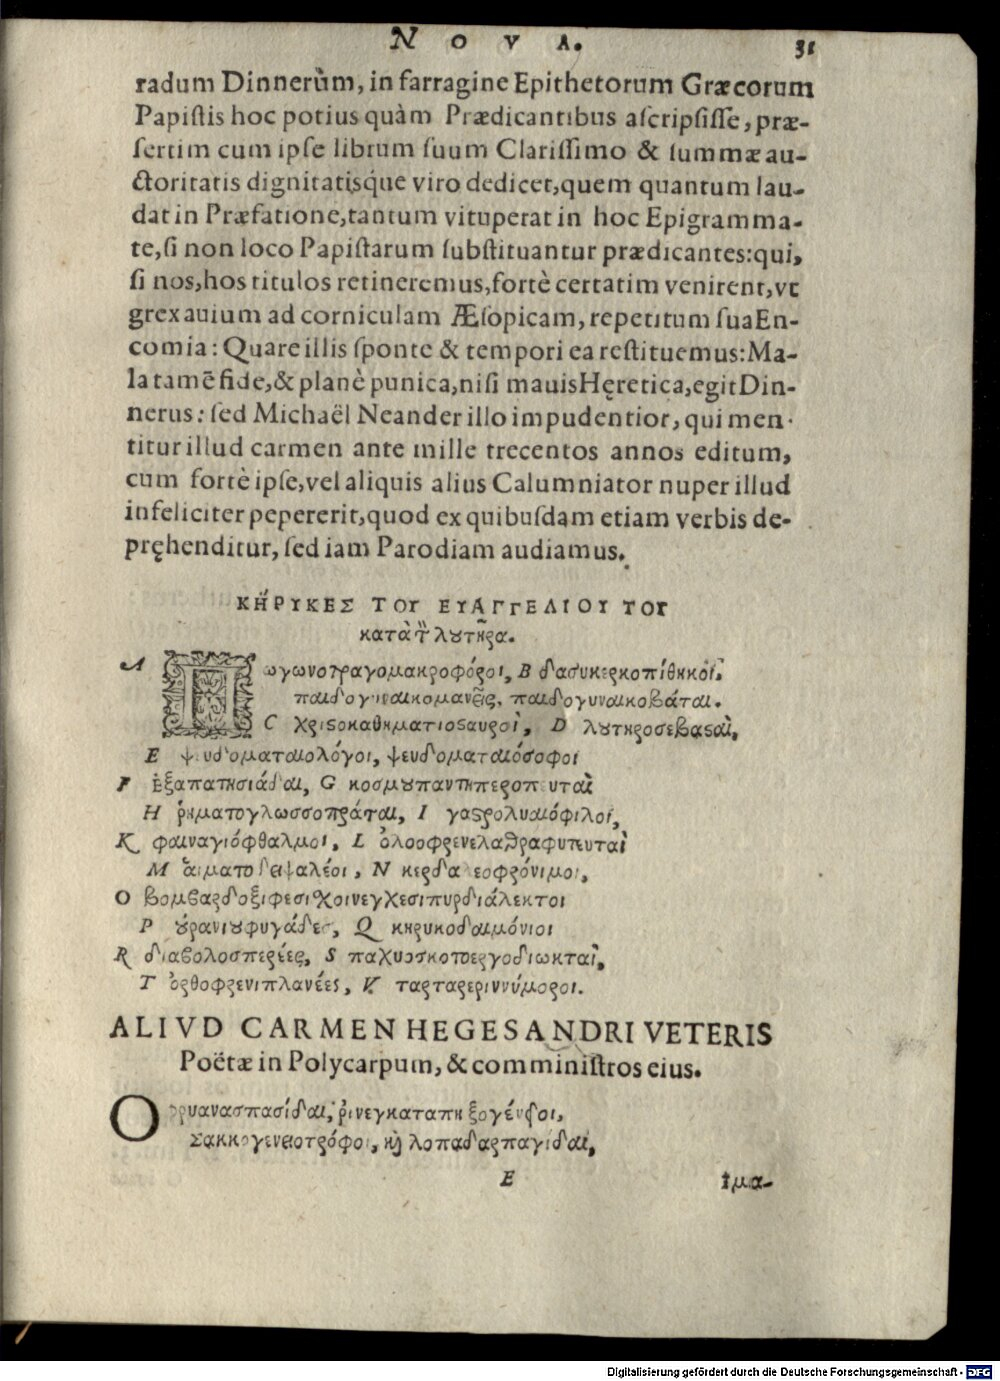 NOVA. 31
radum Dinnerùm, in farragine Epithetorum Græcorum
Papiſtis hoc potius quàm Prædicantibus aſcripſiſſe, præ-
ſertim cum ipſe librum ſuum Clariſſimo & ſummæ au-
ctoritatis dignitatisq́ue viro dedicet, quem quantum lau-
dat in Præfatione, tantum vituperat in hoc Epigramma-
te, ſi non loco Papiſtarum ſubſtituantur prædicantes: qui,
ſi nos, hos titulos retineremus, fortè certatim venirent, vt
grex auium ad corniculam Æſopicam, repetitum ſua En-
comia: Quare illis ſponte & tempori ea reſtituemus: Ma-
la tamẽ fide, & planè punica, niſi mauis Hęretica, egit Din-
nerus: ſed Michaël Neander illo impudentior, qui men-
titur illud carmen ante mille trecentos annos editum,
cum fortè ipſe, vel aliquis alius Calumniator nuper illud
infeliciter pepererit, quod ex quibuſdam etiam verbis de-
pręhenditur, ſed iam Parodiam audiamus.
ΚΉΡΥΚΕΣ ΤΟΥ ΕΥΑΓΓΕΛΙΟΥ ΤΟΥ
κατὰ τ̃ λȣτῆρα.
A Πωγωνοτραγομακροφόροι, B δασυκερκοπίθηκοι.
παιδογυναικομανεῖς, παιδογυναικοβάται.
C χριϛοκαθηματιοϛαυροὶ, D λυτηροσεβαϛαὶ,
E ψευδοματαιολόγοι, ψευδοματαιόσοφοι
F ἐξαπατησιάδαι, G κοσμȣπαντηπεροπευταὶ
H ῥηματογλωσσοπράται, I γαϛρολυαιόφιλοι,
K φαιναγιόφθαλμοι, L ὀλοοφρενελαθραφυτευταὶ
M αἱματοδειψαλέοι, N κερδαλεοφρόνιμοι,
O βομβαρδοξιφεσιχοινεγχεσιπυρδιάλεκτοι
P ȣρανιȣφυγάδες, Q κηρυκοδαιμόνιοι
R διαβολοσπερέες, S παχυοσκοτοεργοδιωκταὶ,
T ὀρθοφρενιπλανέες, V ταρταρεριννύμοροι.
ALIVD CARMEN HEGESANDRI VETERIS
Poëtæ in Polycarpum, & comminiſtros eius.
Οφρυανασπασίδαι, ῥινεγκαταπηξογένειοι,
Σακκογενειοτρόφοι, κỳ λοπαδαρπαγίδαι,
E ἱμα-
Digitalisierung gefördert durch die Deutsche Forschungsgemeinschaft - DFG